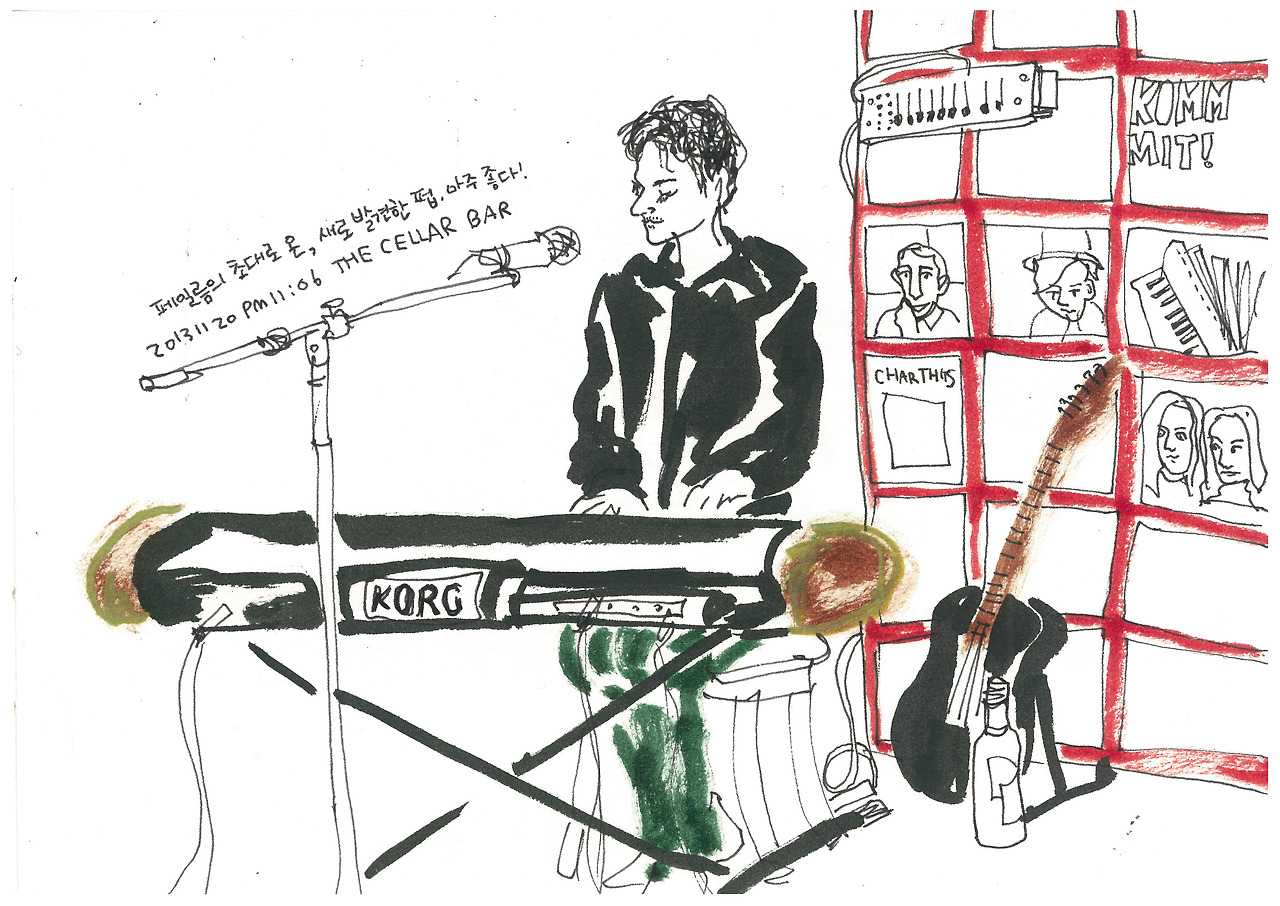 페일름의 초대로 온, 새로 발견한 펍. 아주 좋다!
2013 11 20 PM 11:06 THE CELLAR BAR
KOMM
MIT!
CHARTHGS
KORG